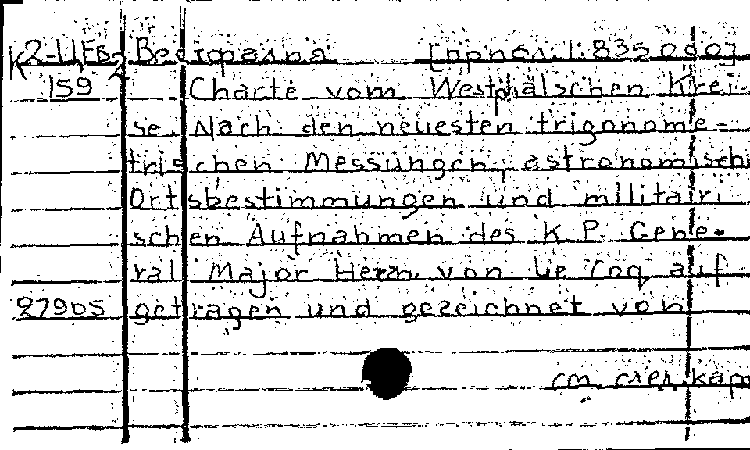 К 2-ЦЕв 2 Вестфалия [ориен. 1:835000]
159 Charte vom Westphälschen Krei-
se. Nach den neuesten trigonome-
trischen Messungen, astronomisch
Ortsbestimmungen und militairi
schen Aufnahmen des K. P. Gene-
ral Major Herrn von Le Coq auf
27905 getragen und gezeichnet von
см. след. кар